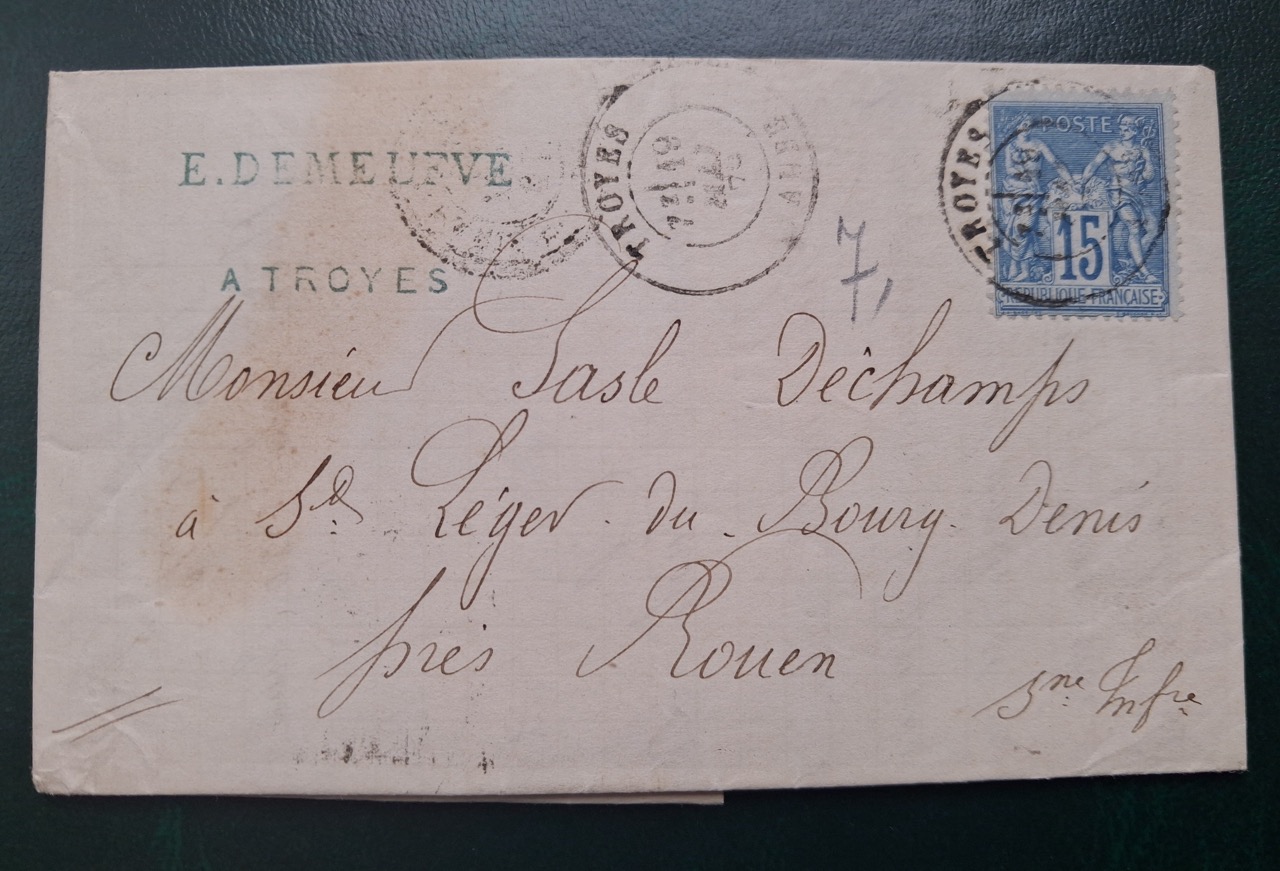 E. DEMEUFVE
A TROYES
TROYES
AUBE
19
TROYES
19
POSTE
15
REPUBLIQUE FRANÇAISE
7,
Monsieur Deschamps
à St. Léger du Bourg Denis
près Rouen
Sne Infre